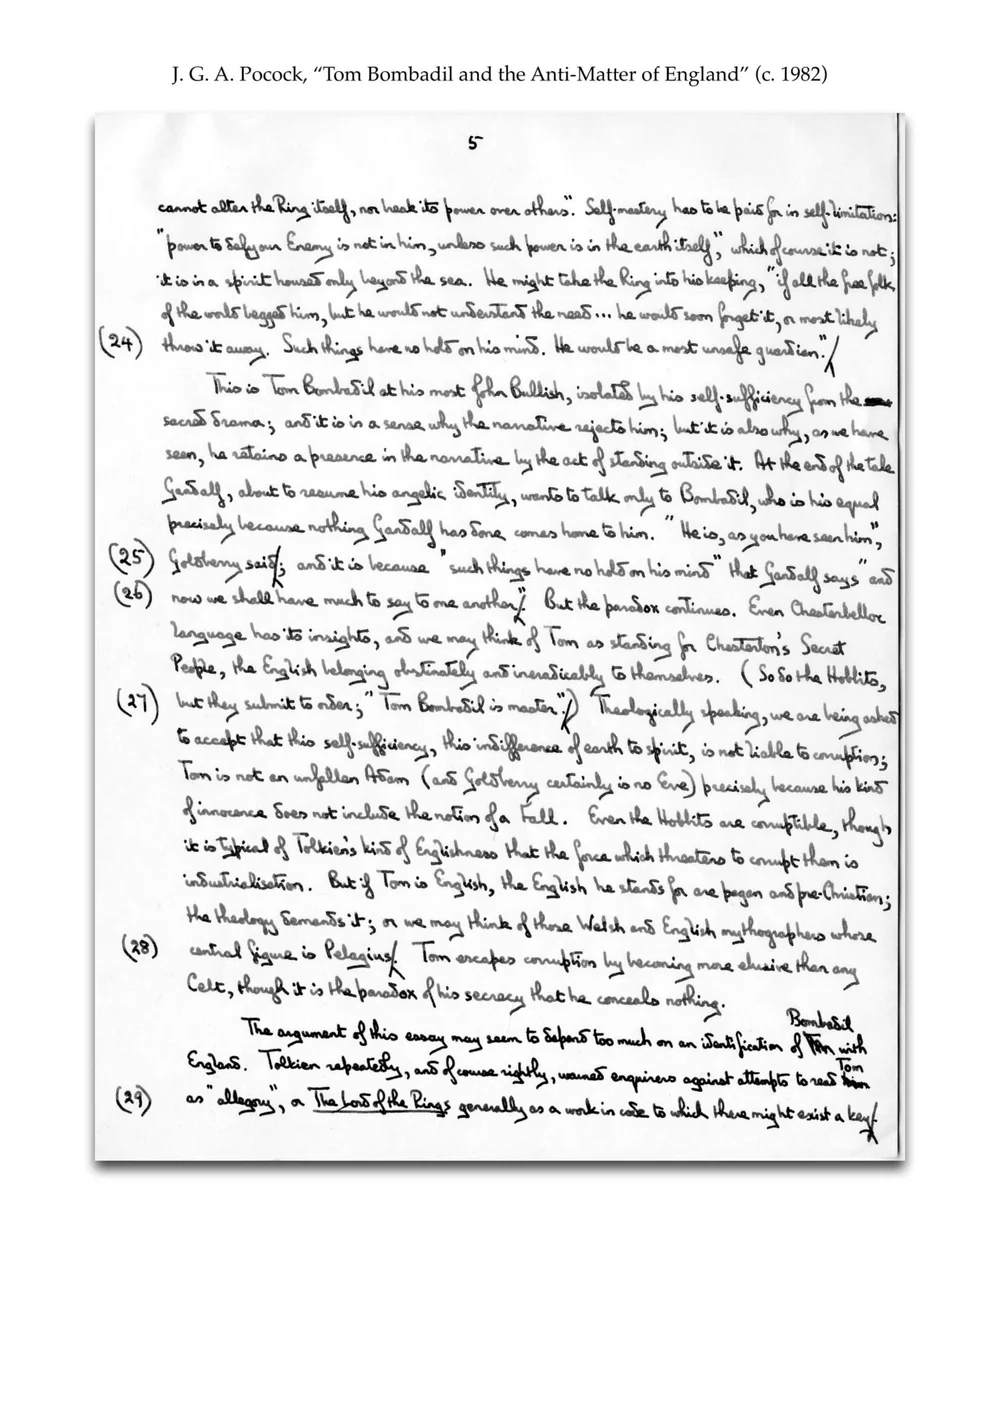 J. G. A. Pocock, “Tom Bombadil and the Anti-Matter of England” (c. 1982)
5
cannot alter the Ring itself, nor break its power over others". Self-mastery has to be paid for in self-limitation:
"power to defy our Enemy is not in him, unless such power is in the earth itself," which of course it is not;
it is in a spirit housed only beyond the sea. He might take the Ring into his keeping, "if all the free folk
of the world begged him, but he would not understand the need... he would soon forget it, or most likely
(24) throw it away. Such things have no hold on his mind. He would be a most unsafe guardian."/
This is Tom Bombadil at his most John Bullish, isolated by his self-sufficiency from the
sacred drama; and it is in a sense why the narrative rejects him; but it is also why, as we have
seen, he retains a presence in the narrative by the act of standing outside it. At the end of the tale
Gandalf, about to resume his angelic identity, wants to talk only to Bombadil, who is his equal
precisely because nothing Gandalf has done comes home to him. "He is, as you have seen him",
(25) Goldberry said/; and it is because "such things have no hold on his mind" that Gandalf says "and
(26) now we shall have much to say to one another/." But the paradox continues. Even Chesterbelloc
language has its insights, and we may think of Tom as standing for Chesterton's Secret
People, the English belonging obstinately and ineradicably to themselves. (So do the Hobbits,
(27) but they submit to order; "Tom Bombadil is master"./) Theologically speaking, we are being asked
to accept that this self-sufficiency, this indifference of earth to spirit, is not liable to corruption;
Tom is not an unfallen Adam (and Goldberry certainly is no Eve) precisely because his kind
of innocence does not include the notion of a Fall. Even the Hobbits are corruptible, though
it is typical of Tolkien's kind of Englishness that the force which threatens to corrupt them is
industrialisation. But if Tom is English, the English he stands for are pagan and pre-Christian;
the theology demands it; or we may think of those Welsh and English mythographers whose
(28) central figure is Pelagius/. Tom escapes corruption by becoming more elusive than any
Celt, though it is the paradox of his secrecy that he conceals nothing.
Bombadil
The argument of this essay may seem to depend too much on an identification of Tom with
England. Tolkien repeatedly, and of course rightly, warned enquirers against attempts to read him
Tom
(29) as "allegory", or The Lord of the Rings generally as a work in code to which there might exist a key/.